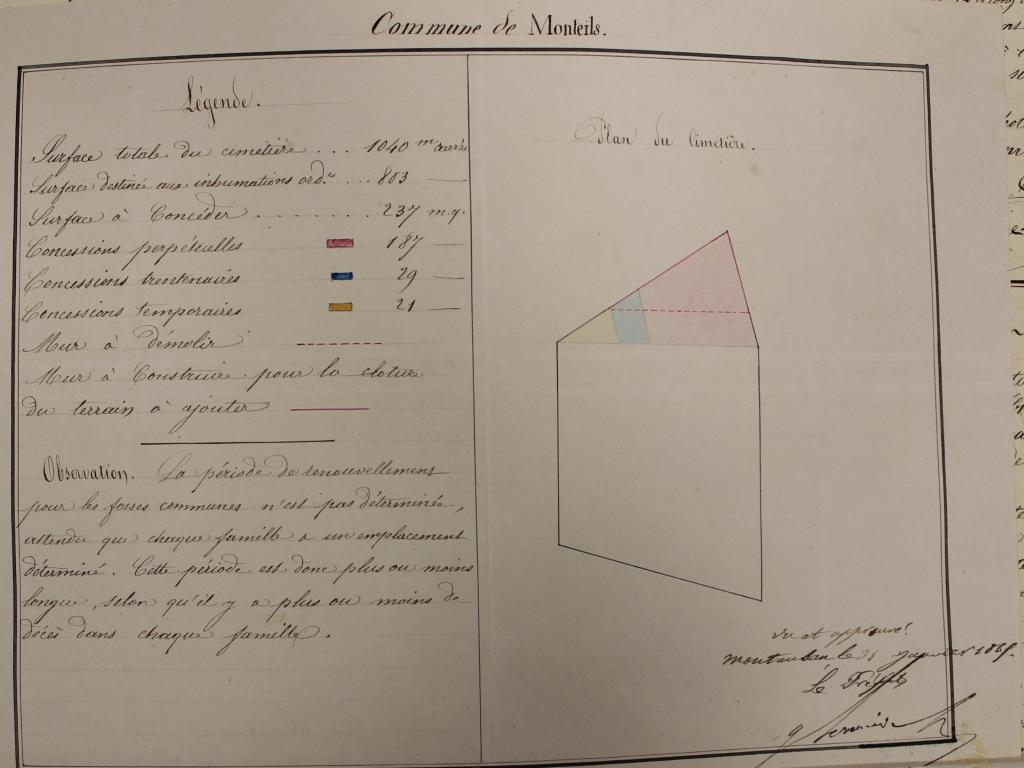 Commune de Monteils.
Légende.
Surface totale du cimetière . . . 1040 m carrés
Surface destinée aux inhumations ord.res . . . 803 —
Surface à Concéder . . . . . . . . 237 m.q.
Concessions perpétuelles 187 —
Concessions trentenaires 29 —
Concessions temporaires 21 —
Mur à démolir
Mur à Construire pour la cloture
du terrain à ajouter
Observation. La période de renouvellement
pour les fosses communes n'est pas déterminée,
attendu que chaque famille a un emplacement
déterminé. Cette période est donc plus ou moins
longue, selon qu'il y a plus ou moins de
décès dans chaque famille.
Plan du Cimetière.
Vu et approuvé.
Montauban le 21 janvier
Le Préfet